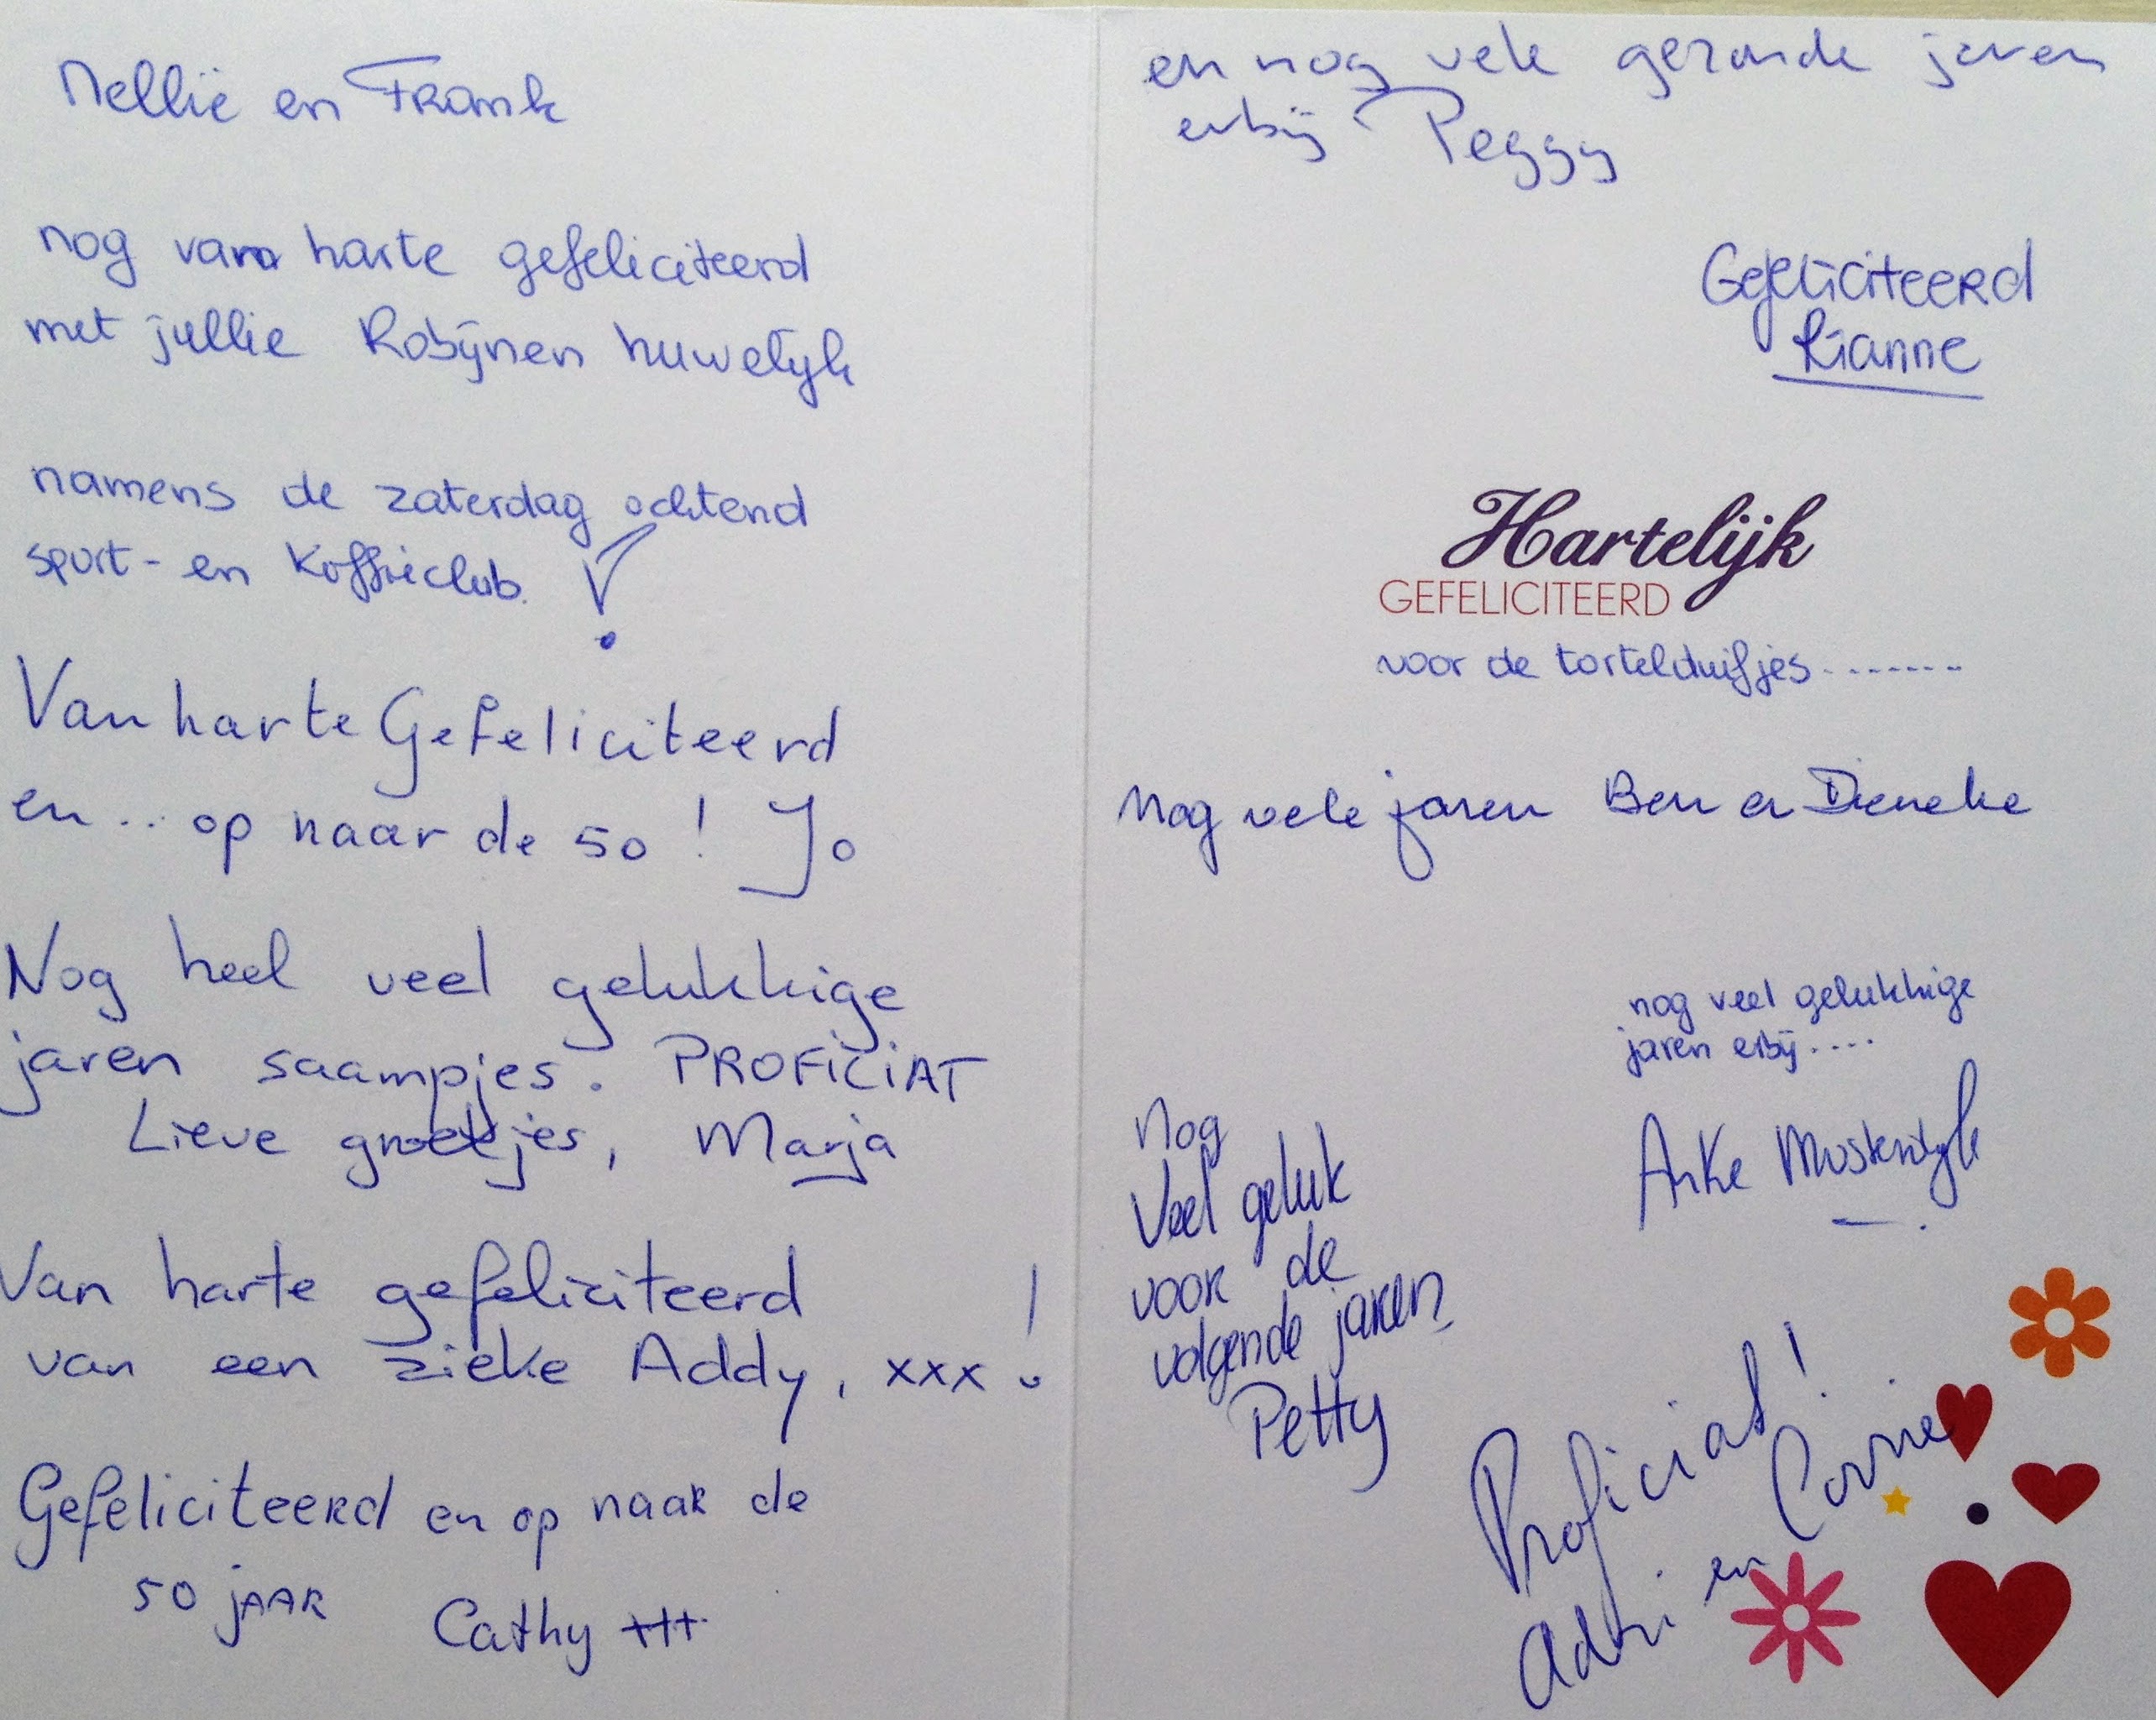 Nellie en Frank
nog van harte gefeliciteerd
met jullie Robijnen huwelijk
namens de zaterdag ochtend
sport- en koffieclub. !
Van harte Gefeliciteerd
en .. op naar de 50! Jo
Nog heel veel gelukkige
jaren saampjes. PROFICIAT
Lieve groetjes, Marja
Van harte gefeliciteerd
van een zieke Addy, xxx !
Gefeliciteerd en op naar de
50 jAAR Cathy +++
en nog vele gezonde jaren
erbij Peggy
Gefeliciteerd
Rianne
Hartelijk
GEFELICITEERD
voor de tortelduifjes.......
Nog vele jaren Ben en Dieneke
nog veel gelukkige
jaren erbij....
Anke
nog
veel geluk
voor de
volgende jaren
Petty
Proficiat!
Adri en Corrie